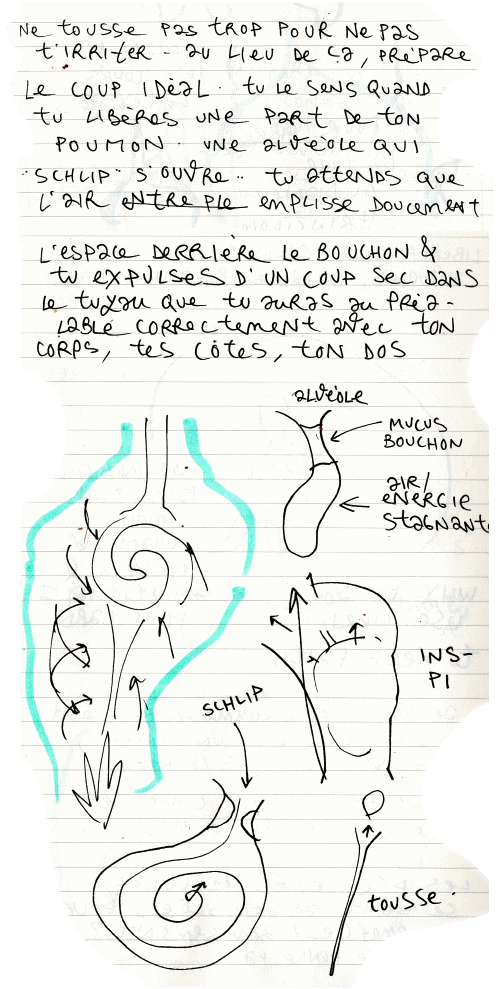 Ne tousse pas trop pour ne pas
t'irriter - au lieu de ça, prépare
le coup idéal. tu le sens quand
tu libères une part de ton
poumon. une alvéole qui
"schlip" s'ouvre.. tu attends que
l'air entre ple emplisse doucement
l'espace derrière le bouchon &
tu expulses d'un coup sec dans
le tuyau que tu auras au préa-
lable correctement avec ton
corps, tes côtes, ton dos
alvéole
mucus
bouchon
air/
énergie
stagnante
ins-
pi
schlip
tousse.